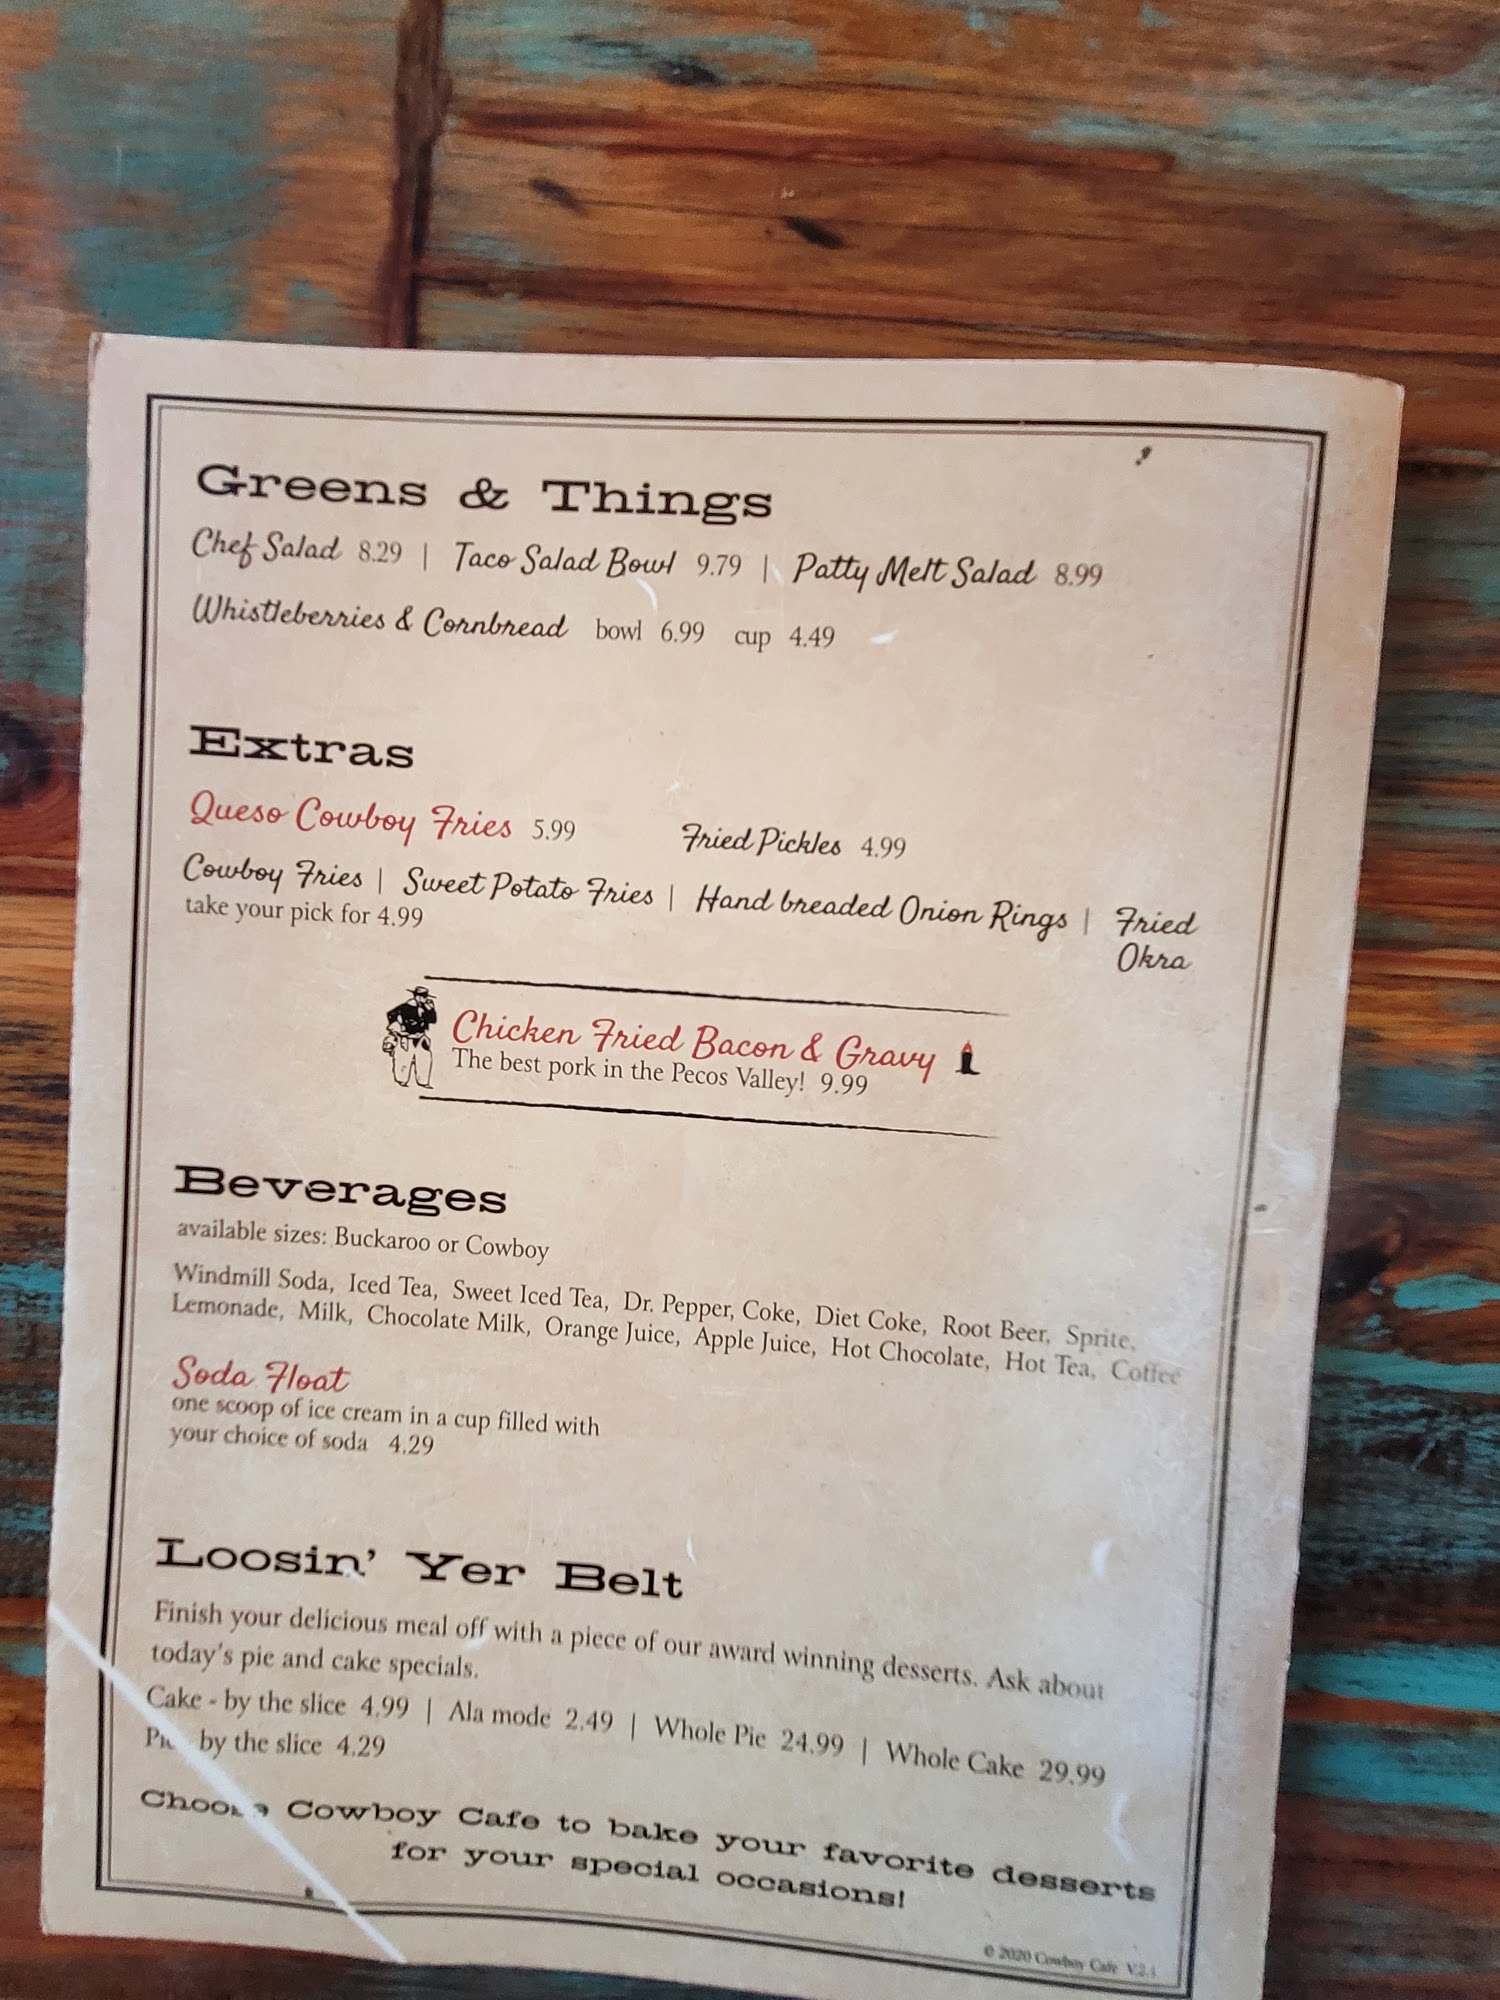 Greens & Things
Chef Salad 8.29 | Taco Salad Bowl 9.79 | Patty Melt Salad 8.99
Whistleberries & Cornbread bowl 6.99 cup 4.49
Extras
Queso Cowboy Fries 5.99 Fried Pickles 4.99
Cowboy Fries | Sweet Potato Fries | Hand breaded Onion Rings | Fried
Okra
take your pick for 4.99
Chicken Fried Bacon & Gravy
The best pork in the Pecos Valley! 9.99
Beverages
available sizes: Buckaroo or Cowboy
Windmill Soda, Iced Tea, Sweet Iced Tea, Dr. Pepper, Coke, Diet Coke, Root Beer, Sprite,
Lemonade, Milk, Chocolate Milk, Orange Juice, Apple Juice, Hot Chocolate, Hot Tea, Coffee
Soda Float
one scoop of ice cream in a cup filled with
your choice of soda 4.29
Loosin' Yer Belt
Finish your delicious meal off with a piece of our award winning desserts. Ask about
today's pie and cake specials.
Cake - by the slice 4.99 | Ala mode 2.49 | Whole Pie 24.99 | Whole Cake 29.99
Pie - by the slice 4.29
Choose Cowboy Cafe to bake your favorite desserts
for your special occasions!
© 2020 Cowboy Cafe V.2.1